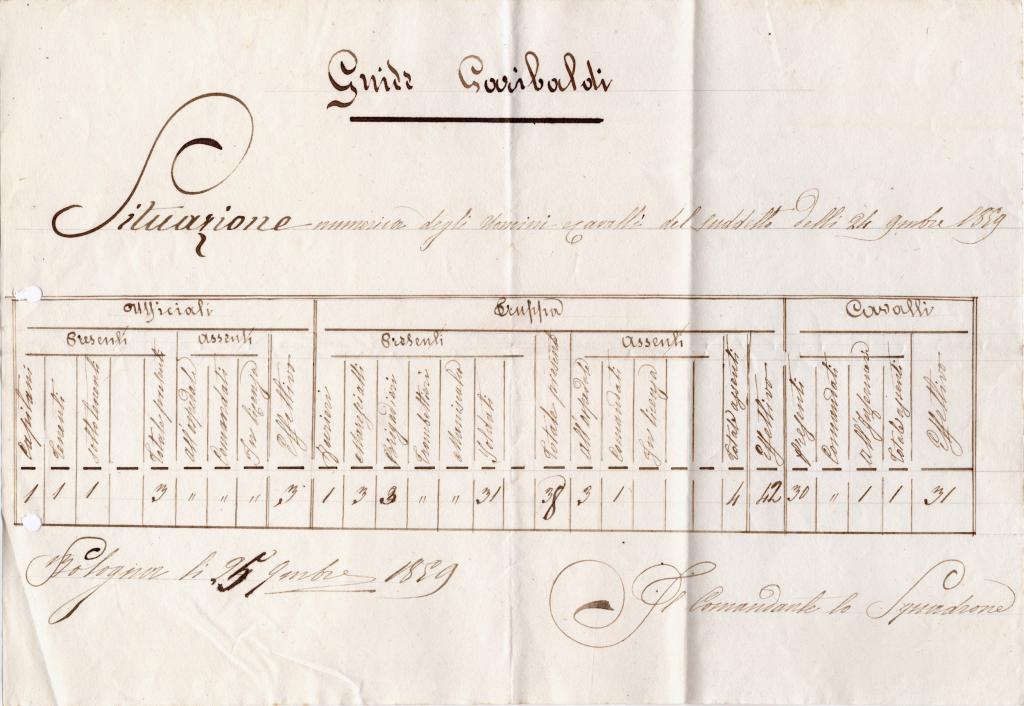 Guide Garibaldi
Situazione numerica degli uomini e cavalli del suddetto delli 24 9mbre 1859
Ufficiali Truppa Cavalli
Presenti Assenti Presenti Assenti
Capitani Tenenti sottotenenti Totale presenti all'ospedale Comandati In licenza Effettivo Furieri Marescialli Brigadieri Trombettieri Maniscalco Soldati Totale presenti all'ospedale Comandati In licenza Totale assenti Effettivo Presenti Comandati All'infermeria Totale assenti Effettivo
1 1 1 3 " " " 3 1 3 3 " " 31 38 3 1 4 42 30 " 1 1 31
Bologna li 25 9mbre 1859
Il Comandante lo Squadrone